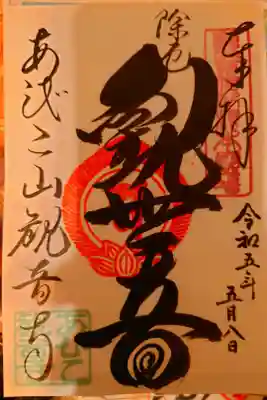 奉拝
令和五年
五月八日
除厄
観世音
あびこ山観音寺